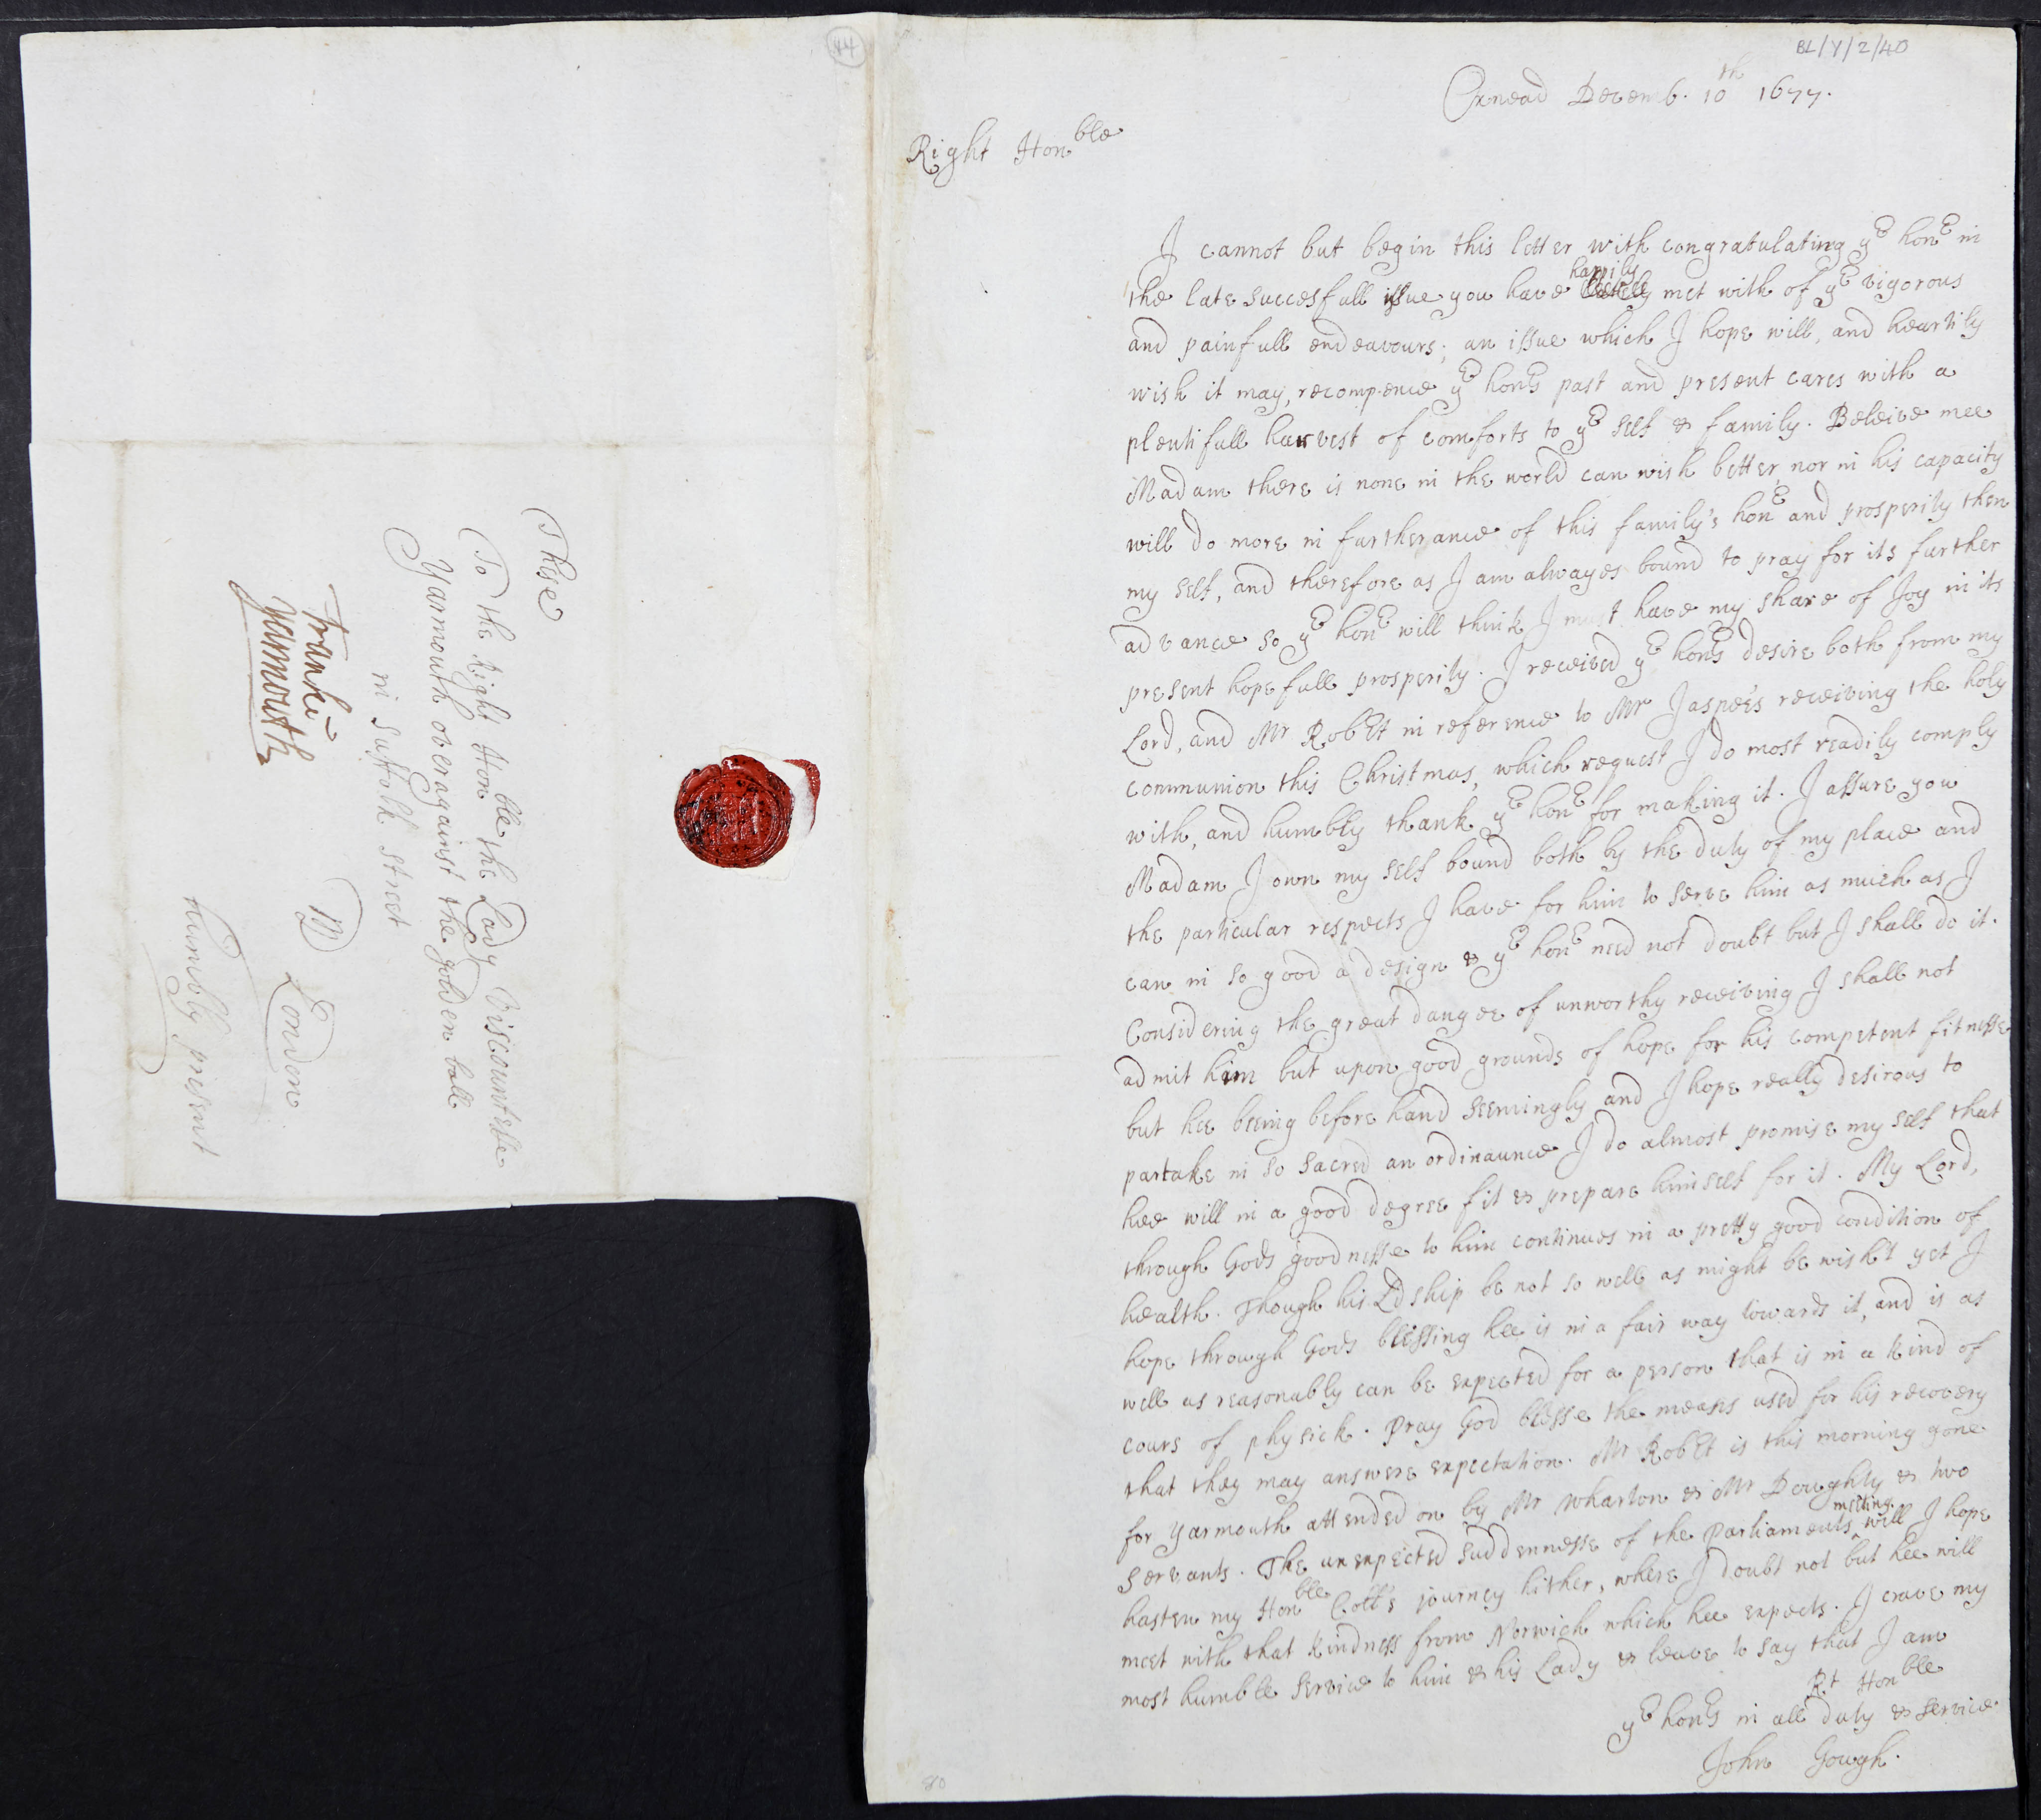 44
BL/Y/2/40
Oxnead Decemb. 10th 1677.
Right Honble
I cannot but begin this letter with congratulating yr honr in
the late succesfull issue you have happily met with of yr vigorous
and painfull endeavours; an issue which I hope will, and heartily
wish it may, recompence yr honrs past and present cares with a
plentifull harvest of comforts to yr self & family. Beleive mee
Madam there is none in the world can wish better, nor in his capacity
will do more in furtherance of this family's honr and prosperity then
my self, and therefore as I am alwayes bound to pray for its further
advance so yr honr will think I must have my share of Joy in its
present hopefull prosperity. I received yr honrs desire both from my
Lord, and Mr Robt in reference to Mr Jasper's receiving the holy
communion this Christmas, which request I do most readily comply
with, and humbly thank yr honr for making it. I assure you
Madam I own my self bound both by the duty of my place and
the particular respects I have for him to serve him as much as I
can in so good a design & yr honr need not doubt but I shall do it.
Considering the great danger of unworthy receiving I shall not
admit him but upon good grounds of hope for his competent fitnesse
but hee being before hand seemingly and I hope really desirous to
partake in so sacred an ordinaunce I do almost promise my self that
hee will in a good degree fit & prepare himself for it. My Lord,
through Gods goodnesse to him continues in a pretty good condition of
health. Though his Ldship be not so well as might be wisht yet I
hope through Gods blessing hee is in a fair way towards it, and is as
well as reasonably can be expected for a person that is in a kind of
cours of physick. Pray God blesse the means used for his recovery
that they may answere expectation. Mr Robt is this morning gone
for Yarmouth attended on by Mr Wharton & Mr Doughty & two
servants. The unexpected suddennesse of the Parliaments meeting will I hope
hasten my Honble Coll's journey hither, where I doubt not but hee will
meet with that kindness from Norwich which hee expects. I crave my
most humble service to him & his Lady & leave to say that I am
Rt Honble
yr honrs in all duty & service
John Gough.
80
These
To the Right Honble the Lady Viscountesse
Yarmouth overagainst the golden ball
in Suffolk street
London
humbly present
Franke
Yarmouth